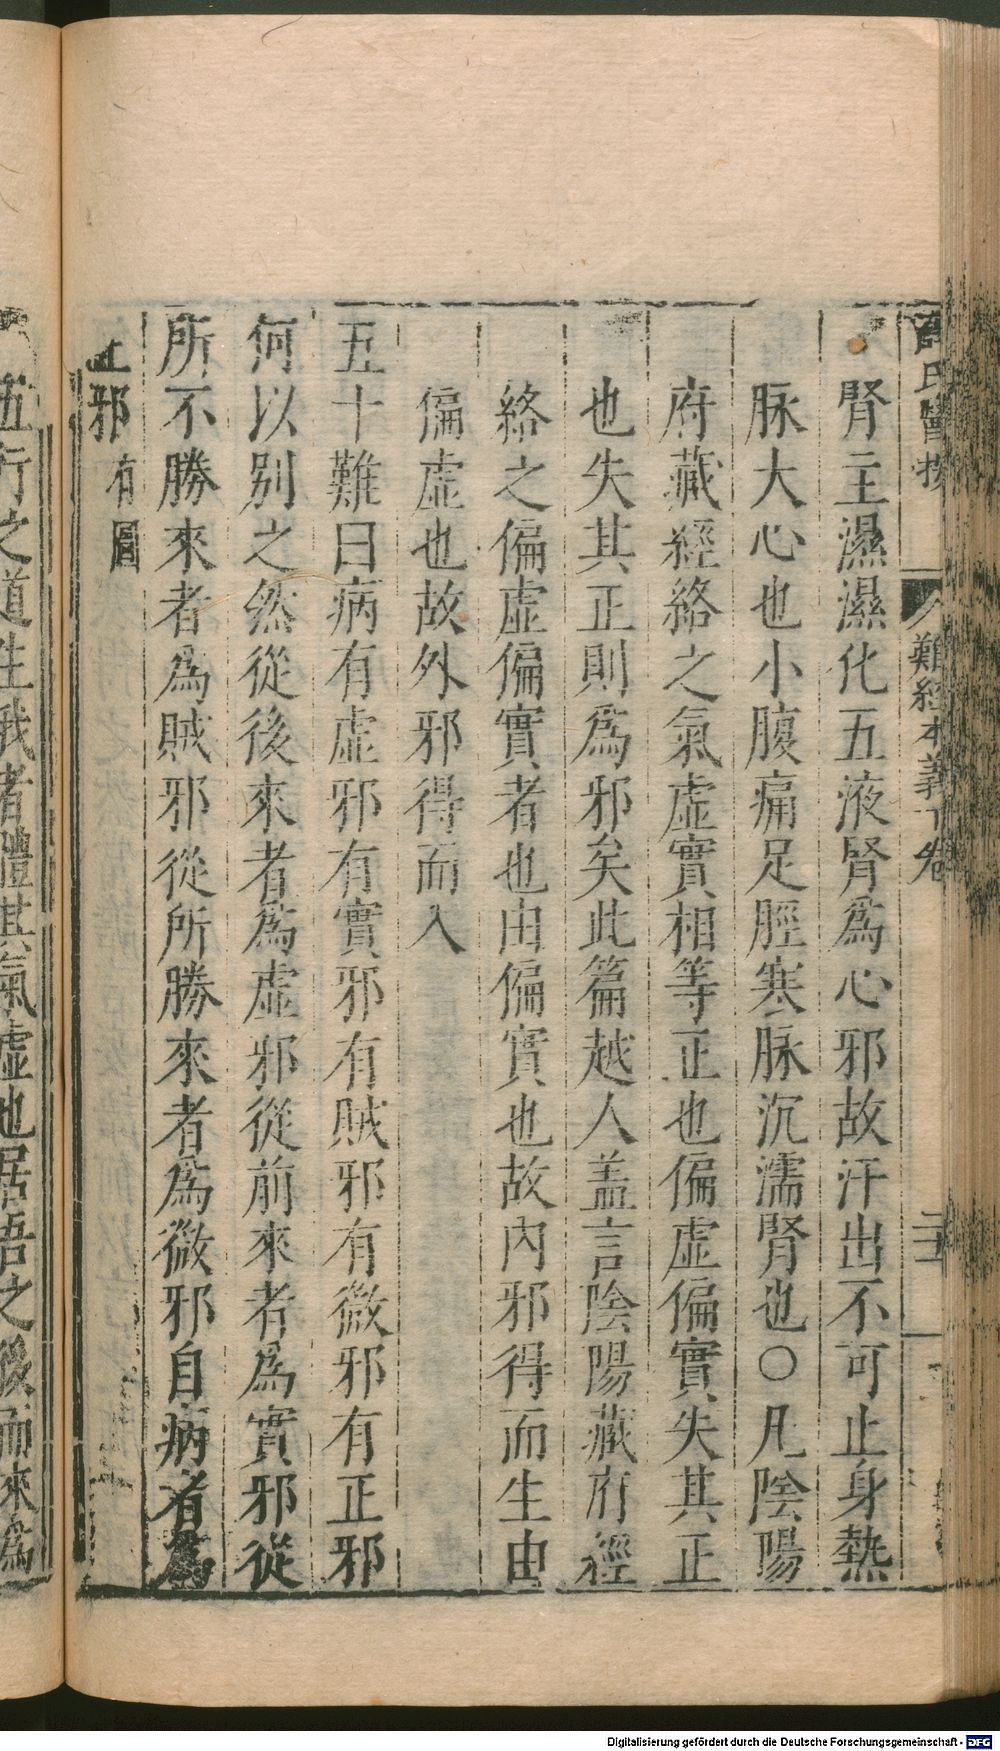 氏醫按
難經本義下卷
腎主濕濕化五液腎爲心邪故汗出不可止身熱
脉大心也小腹痛足脛寒脉沉濡腎也○凡陰陽
府藏經絡之氣虛實相等正也偏虛偏實失其正
也失其正則爲邪矣此篇越人盖言陰陽藏府經
絡之偏虛偏實者也由偏實也故內邪得而生由
偏虛也故外邪得而入
五十難曰病有虛邪有實邪有賊邪有微邪有正邪
何以别之然從後來者爲虛邪從前來者爲實邪從
所不勝來者爲賊邪從所勝來者爲微邪自病者爲
正邪 有圖
五行之道生我者體其氣虛也居吾之後而來爲
Digitalisierung gefördert durch die Deutsche Forschungsgemeinschaft - DFG